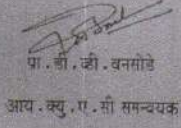 प्रा.डी.व्ही.बनसोडे
आय.क्यु.ए.सी समन्वयक